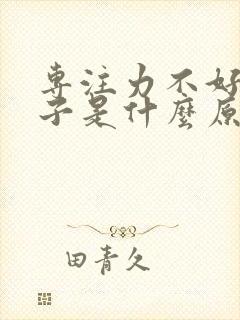 专注力不好
子是什麼原
田青久